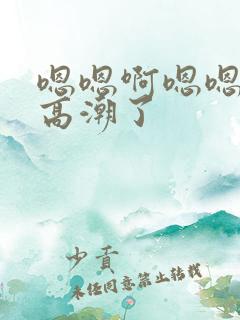 嗯嗯啊嗯嗯
高潮了
少贡
未经同意禁止转载